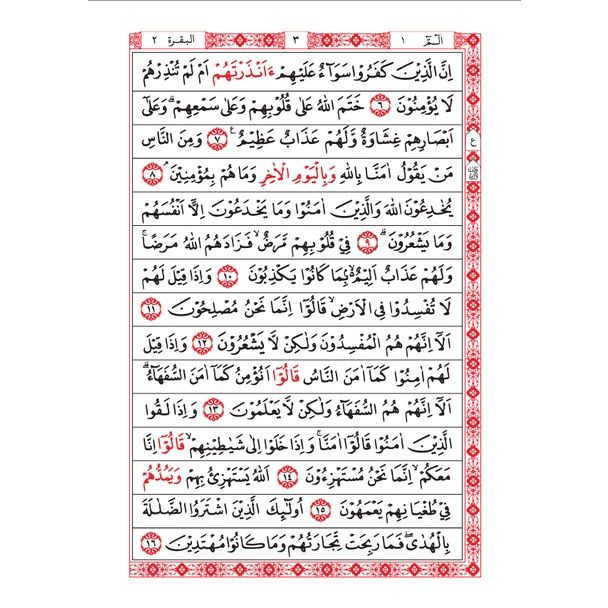 الٓمّٓ ١ ٣ البقرة ٢
اِنَّ الَّذِيْنَ كَفَرُوْا سَوَآءٌ عَلَيْهِمْ ءَاَنْذَرْتَهُمْ اَمْ لَمْ تُنْذِرْهُمْ
لَا يُؤْمِنُوْنَ ٦ خَتَمَ اللهُ عَلٰى قُلُوْبِهِمْ وَعَلٰى سَمْعِهِمْ ؕ وَعَلٰٓى
اَبْصَارِهِمْ غِشَاوَةٌ وَّلَهُمْ عَذَابٌ عَظِيْمٌ ٧ ع وَمِنَ النَّاسِ
مَنْ يَّقُوْلُ اٰمَنَّا بِاللهِ وَبِالْيَوْمِ الْاٰخِرِ وَمَا هُمْ بِمُؤْمِنِيْنَ ۘ ٨
يُخٰدِعُوْنَ اللهَ وَالَّذِيْنَ اٰمَنُوْا ۚ وَمَا يَخْدَعُوْنَ اِلَّآ اَنْفُسَهُمْ
وَمَا يَشْعُرُوْنَ ؕ ٩ فِيْ قُلُوْبِهِمْ مَّرَضٌ ۙ فَزَادَهُمُ اللهُ مَرَضًا ۚ
وَلَهُمْ عَذَابٌ اَلِيْمٌ ۢ ۙ بِمَا كَانُوْا يَكْذِبُوْنَ ١٠ وَاِذَا قِيْلَ لَهُمْ
لَا تُفْسِدُوْا فِى الْاَرْضِ ۙ قَالُوْٓا اِنَّمَا نَحْنُ مُصْلِحُوْنَ ١١
اَلَآ اِنَّهُمْ هُمُ الْمُفْسِدُوْنَ وَلٰكِنْ لَّا يَشْعُرُوْنَ ١٢ وَاِذَا قِيْلَ
لَهُمْ اٰمِنُوْا كَمَآ اٰمَنَ النَّاسُ قَالُوْٓا اَنُؤْمِنُ كَمَآ اٰمَنَ السُّفَهَآءُ ؕ
اَلَآ اِنَّهُمْ هُمُ السُّفَهَآءُ وَلٰكِنْ لَّا يَعْلَمُوْنَ ١٣ وَاِذَا لَقُوا
الَّذِيْنَ اٰمَنُوْا قَالُوْٓا اٰمَنَّا ۖ وَاِذَا خَلَوْا اِلٰى شَيٰطِيْنِهِمْ ۙ قَالُوْٓا اِنَّا
مَعَكُمْ ۙ اِنَّمَا نَحْنُ مُسْتَهْزِءُوْنَ ١٤ اَللهُ يَسْتَهْزِئُ بِهِمْ وَيَمُدُّهُمْ
فِيْ طُغْيَانِهِمْ يَعْمَهُوْنَ ١٥ اُولٰٓئِكَ الَّذِيْنَ اشْتَرَوُا الضَّلٰلَةَ
بِالْهُدٰى ۪ فَمَا رَبِحَتْ تِّجَارَتُهُمْ وَمَا كَانُوْا مُهْتَدِيْنَ ١٦
ع